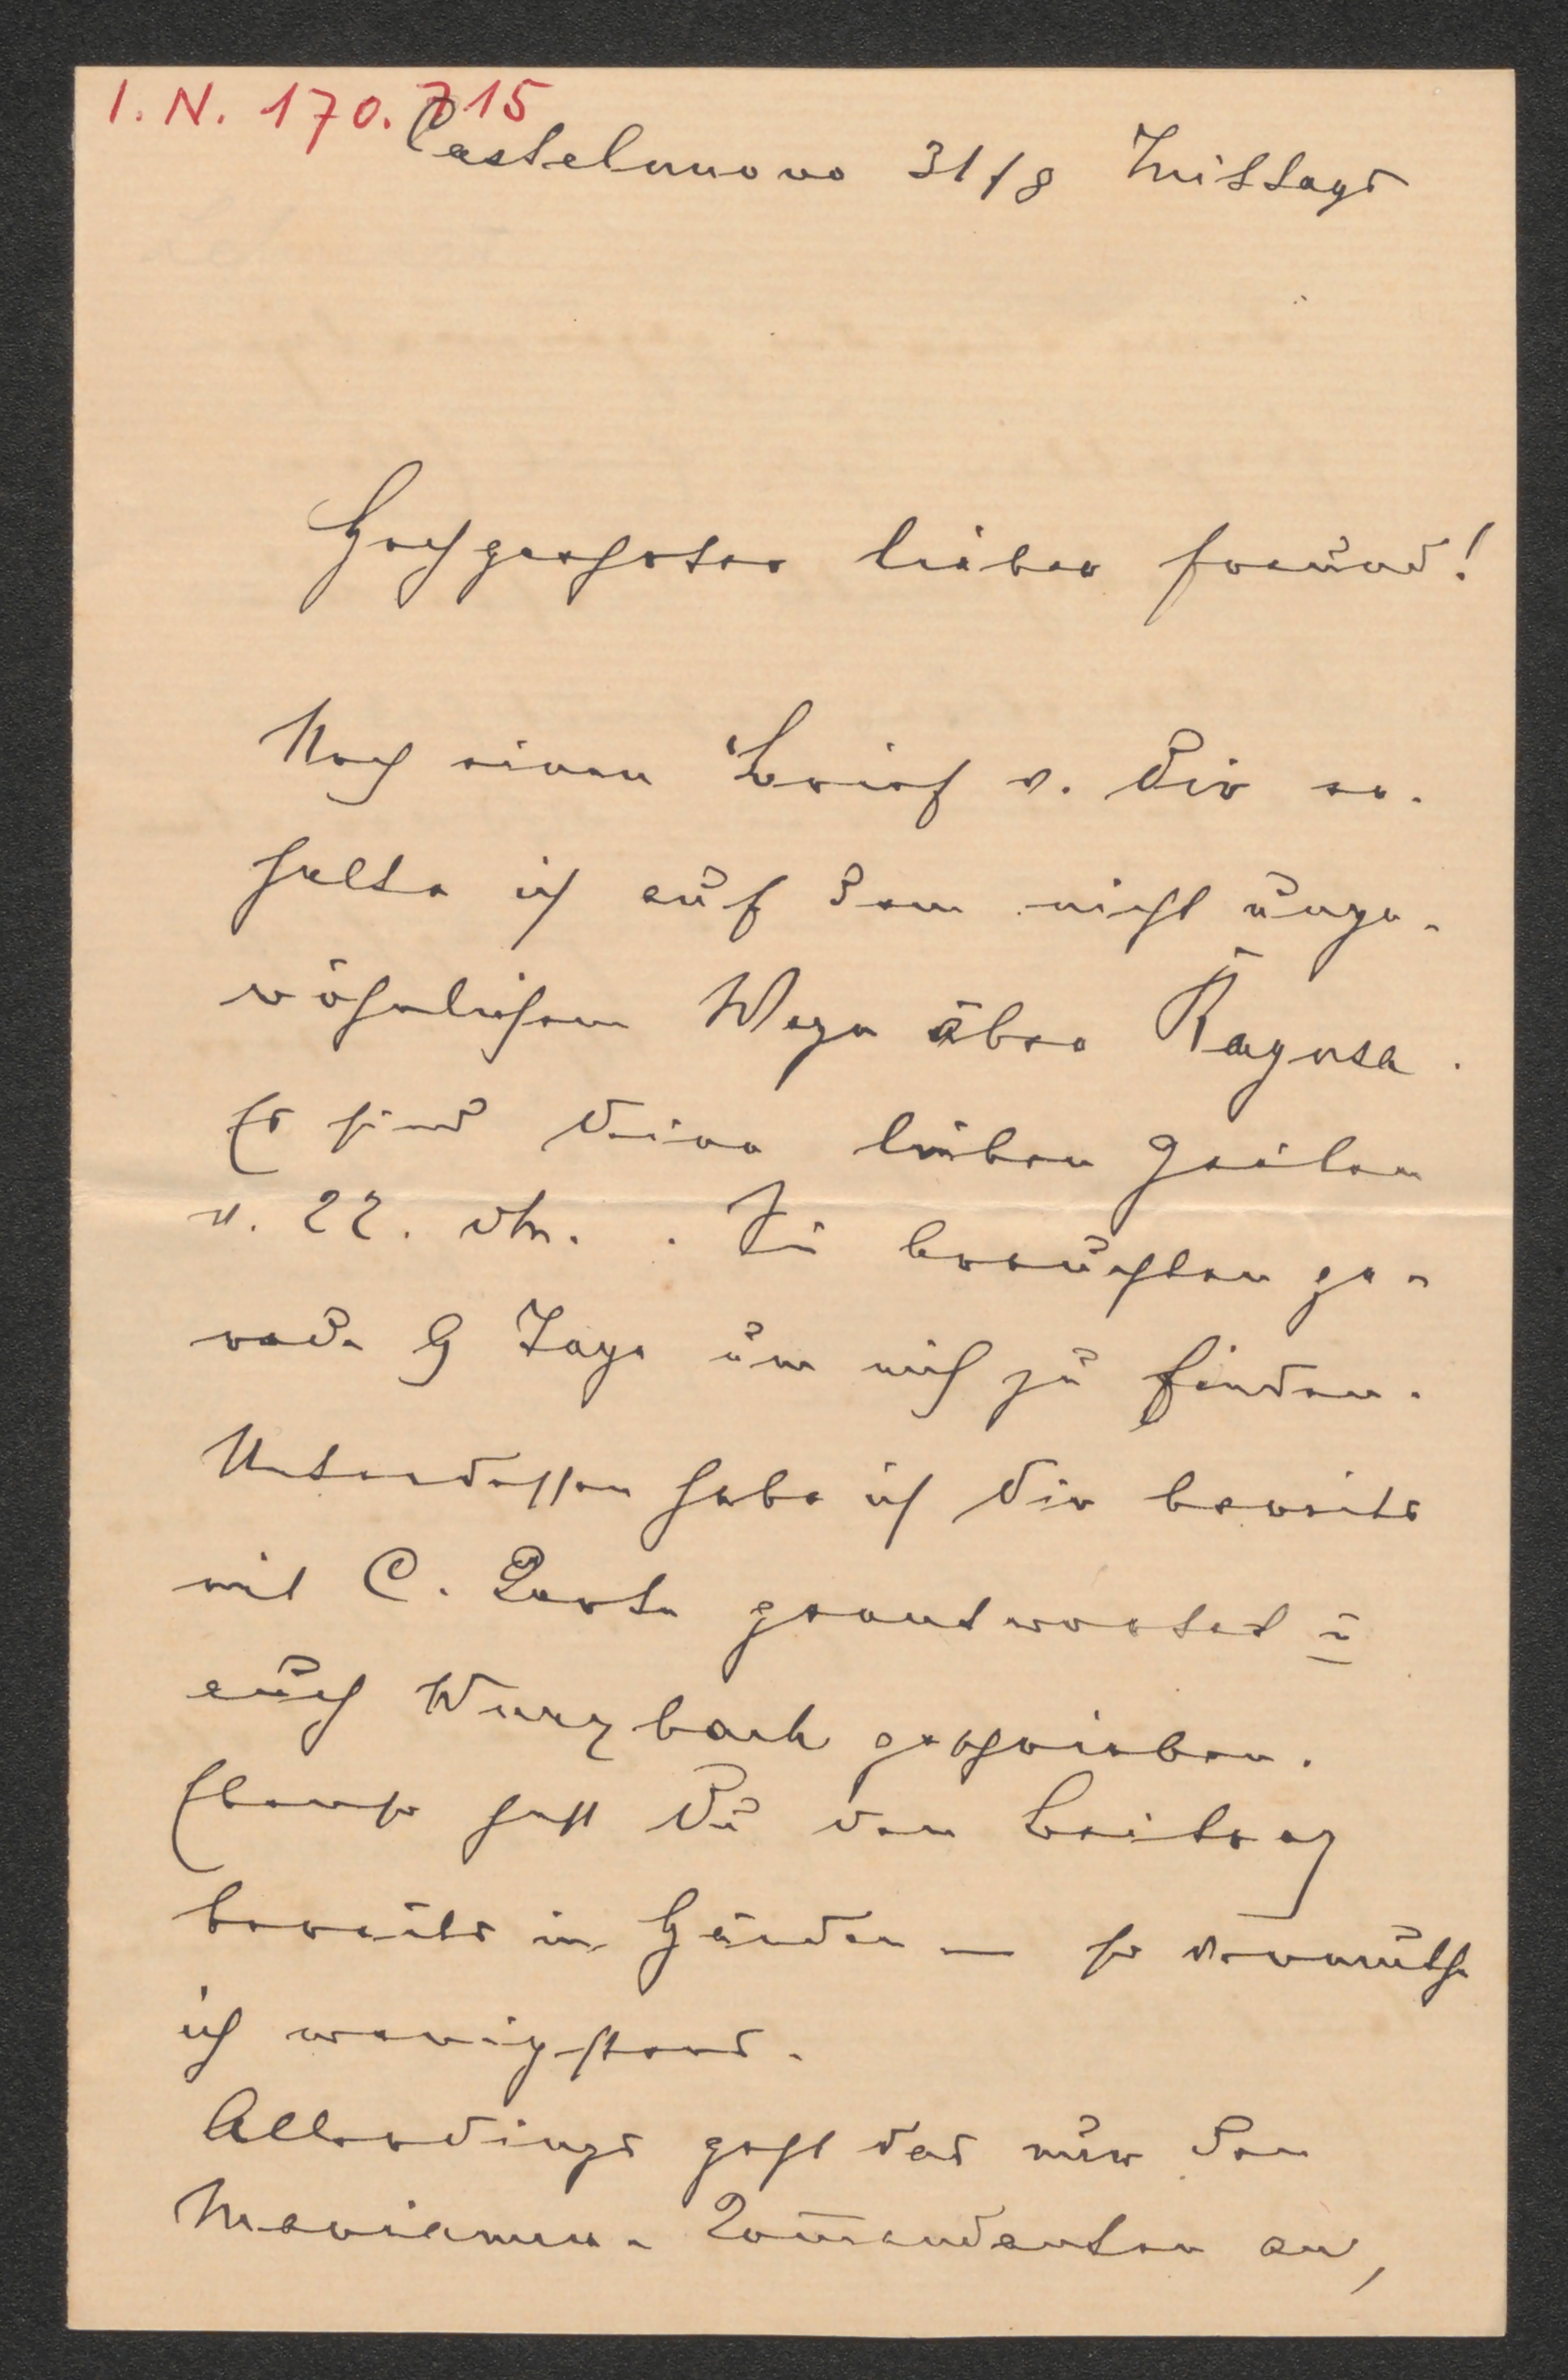 I. N. 170.715
Castelnuovo 31/8 Mittags
Hochgeehrter lieber Freund!
Noch einen Brief v. Dir er-
halte ich auf dem nicht unge-
wöhnlichem Wege über Ragusa.
Es sind Deine lieben Zeilen
v. 22. dM. . Sie brauchten ge-
rade 9 Tage um mich zu finden.
Unterdessen habe ich Dir bereits
mit C. Karte geantwortet u
auch Wurzbach geschrieben.
Ebenso hast Du den Beitrag
bereits in Händen — so vermuthe
ich wenigstens.
Allerdings geht das nur den
Mariannen-Com̅andanten an,